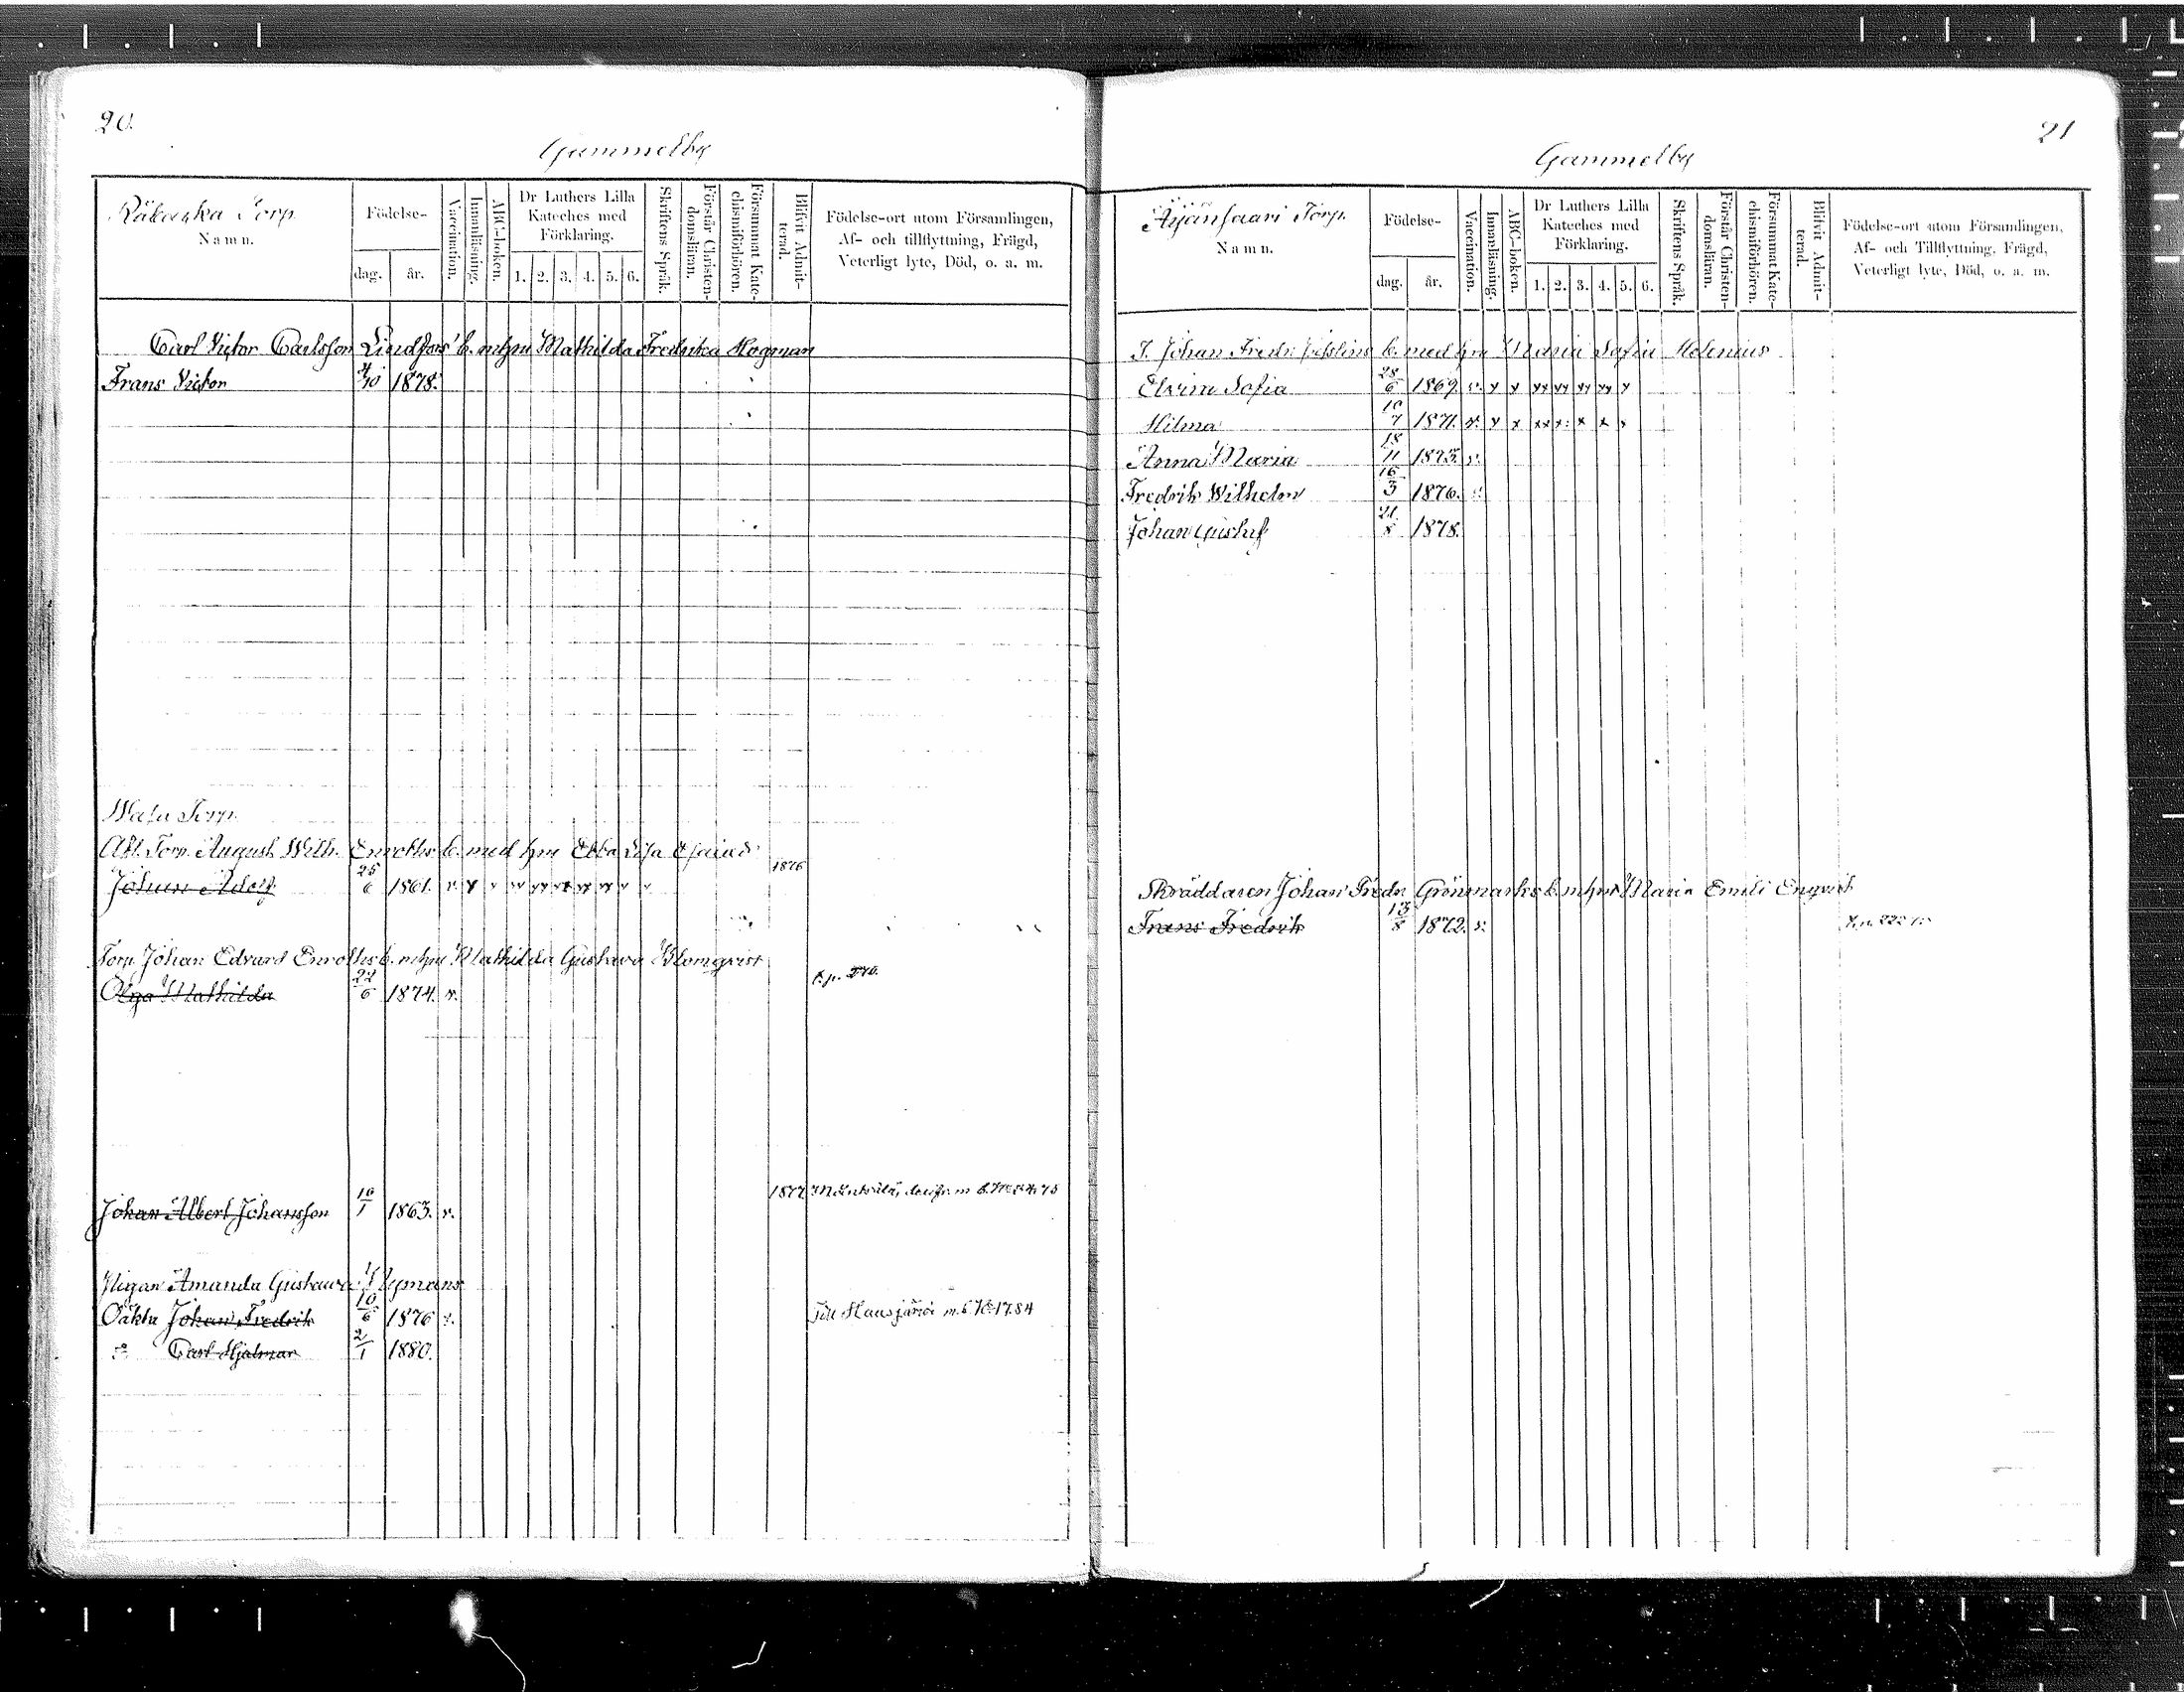 20.
Gammelby
Räkaska Torp
Namn.
Födelse-
dag. år.
Vaccination.
Innanläsning.
ABC-boken.
Dr Luthers Lilla Kateches med Förklaring.
1. 2. 3. 4. 5. 6.
Skriftens Språk.
Förstår Christen-domsläran.
Försummat Kate-chismiförhören.
Blifvit Admit-terad.
Födelse-ort utom Församlingen,
Af- och tillflyttning, Frägd,
Veterligt lyte, Död, o. a. m.
Carl Victor Carlsson Lindfors' b. m hru Mathilda Fredrika Hogman
Frans Victor 4/10 1878.
Torp.
Afl. Torp. August Wilh. Enroths b. med hru Ebba Lisa
Johan Adolf 25/6 1861. v. 1876
Torp. Johan Edvard Enroths b. m hru Mathilda Gustava Blomqvist
Olga Mathilda 22/6 1874. v.
Johan Albert Johansson 10/1 1863. v. 1877
Pigan Amanda Gustava Nymans
Oäkta Johan Fredrik 10/6 1876 v. Till Hausjärvi m. b. 17.84
Carl Hjalmar 2/1 1880.
21
Gammelby
Äijänsaari Torp.
Namn.
Födelse-
dag. år.
Vaccination.
Innanläsning.
ABC-boken.
Dr Luthers Lilla Kateches med Förklaring.
1. 2. 3. 4. 5. 6.
Skriftens Språk.
Förstår Christen-domsläran.
Försummat Kate-chismiförhören.
Blifvit Admit-terad.
Födelse-ort utom Församlingen,
Af- och Tillflyttning, Frägd,
Veterligt lyte, Död, o. a. m.
T. Johan Fredr. b. med hru Maria Sofia Helenius
Elvira Sofia 28/6 1869. v. x x xx xx xx xx x
Hilma 10/7 1871. v. x x xx x x x x
Anna Maria 18/11 1873. v.
Fredrik Wilhelm 16/3 1876. v.
Johan Gustaf 21/8 1878.
Skräddaren Johan Fredr. Grönmarks b. m hru Maria Emili Engvist
Frans Fredrik 13/8 1872. v.